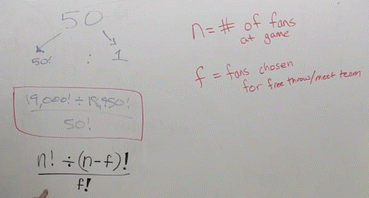 50
50! : 1
19,000! ÷ 18,950!
50!
n! ÷ (n-f)!
f!
n = # of fans
at game
f = fans chosen
for free throw/meet team